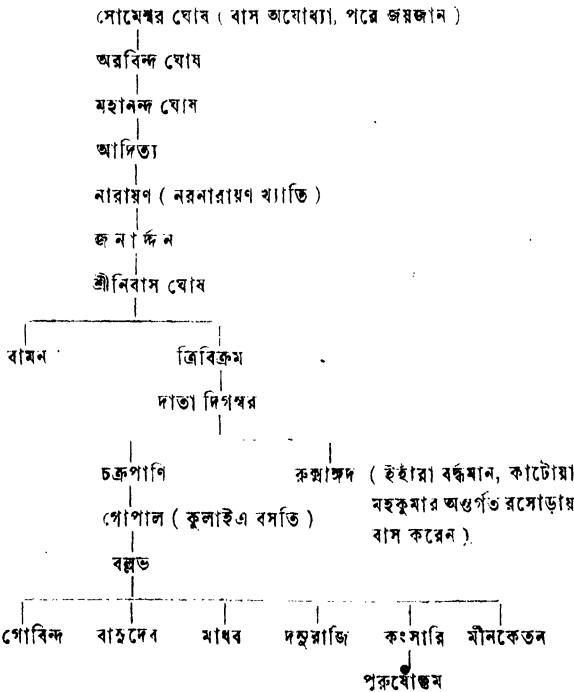 সোমেশ্বর ঘোষ ( বাস অযোধ্যা, পরে জয়জান )
অরবিন্দ ঘোষ
মহানন্দ ঘোষ
আদিত্য
নারায়ণ ( নরনারায়ণ খ্যাতি )
জনার্দ্দন
শ্রীনিবাস ঘোষ
বামন ত্রিবিক্রম
দাতা দিগম্বর
চক্রপাণি রুক্মাঙ্গদ ( ইহাঁরা বর্দ্ধমান, কাটোয়া
গোপাল ( কুলাইএ বসতি ) মহকুমার অন্তর্গত রসোড়ায়
বাস করেন )
বল্লভ
গোবিন্দ বাসুদেব মাধব দনুরাজি কংসারি মীনকেতন
পুরুষোত্তম